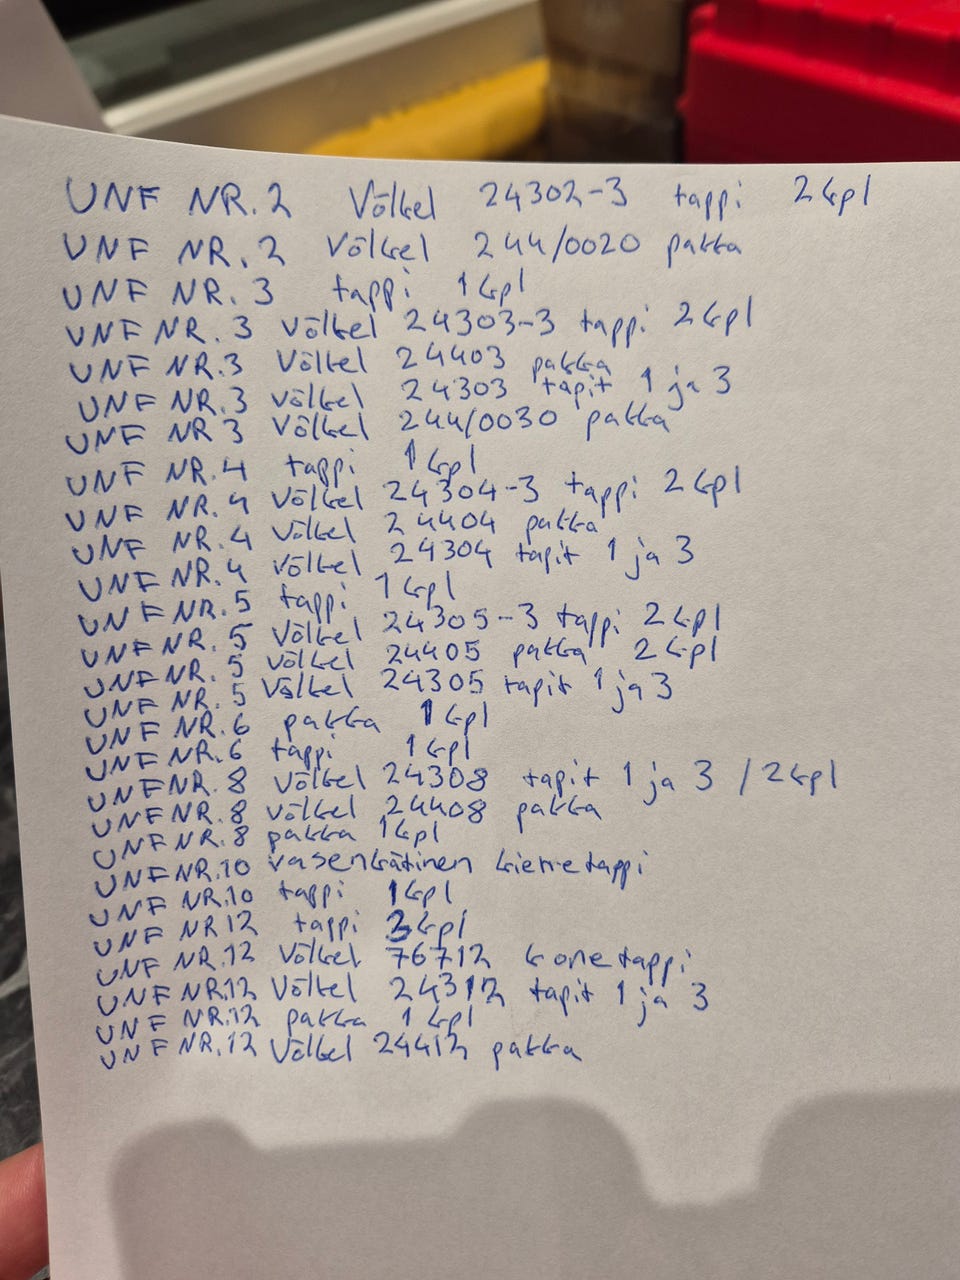 UNF NR.2 Völkel 24302-3 tappi 2kpl
UNF NR.2 Völkel 244/0020 pakka
UNF NR.3 tappi 1kpl
UNF NR.3 Völkel 24303-3 tappi 2kpl
UNF NR.3 Völkel 24403 pakka
UNF NR.3 Völkel 24303 tapit 1 ja 3
UNF NR 3 Völkel 244/0030 pakka
UNF NR.4 tappi 1kpl
UNF NR.4 Völkel 24304-3 tappi 2kpl
UNF NR.4 Völkel 24404 pakka
UNF NR.4 Völkel 24304 tapit 1 ja 3
UNF NR.5 tappi 1kpl
UNF NR.5 Völkel 24305-3 tappi 2kpl
UNF NR.5 Völkel 24405 pakka 2kpl
UNF NR.5 Völkel 24305 tapit 1 ja 3
UNF NR.6 pakka 1kpl
UNF NR.6 tappi 1kpl
UNF NR.8 Völkel 24308 tapit 1 ja 3 /2kpl
UNF NR.8 Völkel 24408 pakka
UNF NR.8 pakka 1kpl
UNF NR.10 vasenkätinen kierretappi
UNF NR.10 tappi 1kpl
UNF NR 12 tappi 3kpl
UNF NR.12 Völkel 76712 konetappi
UNF NR.12 Völkel 24312 tapit 1 ja 3
UNF NR.12 pakka 1kpl
UNF NR.12 Völkel 24412 pakka